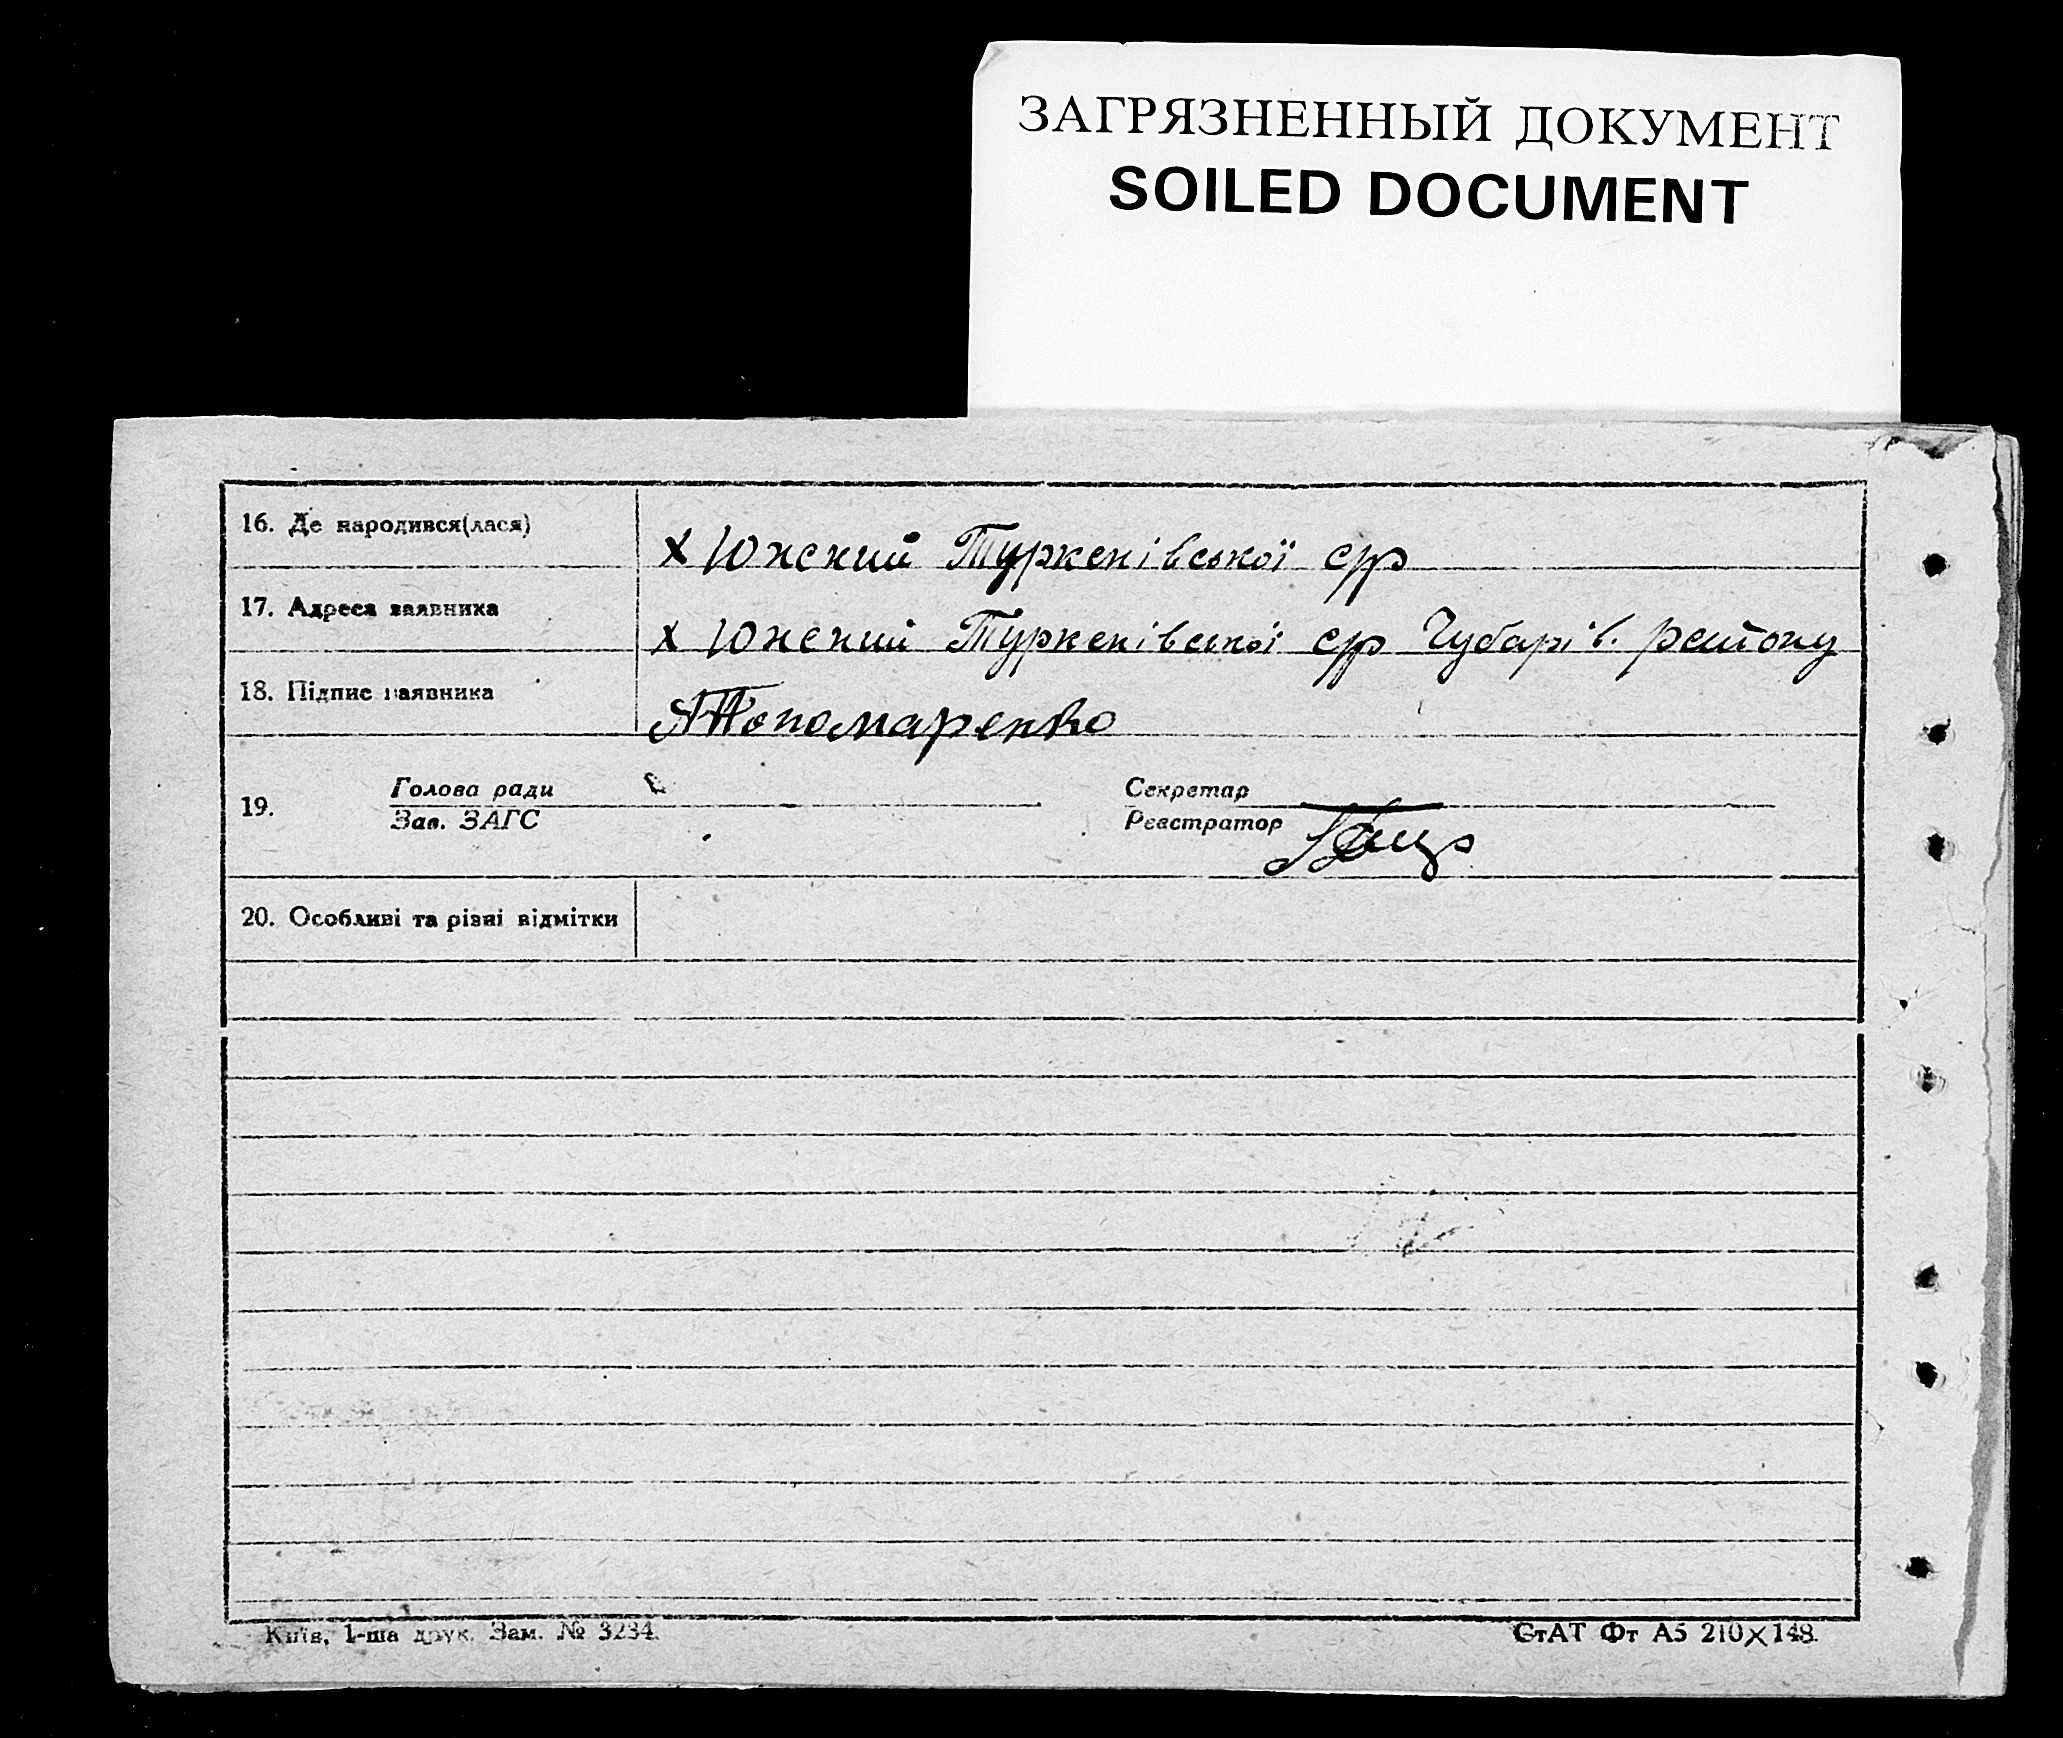 ЗАГРЯЗНЕННЫЙ ДОКУМЕНТ
SOILED DOCUMENT
16. Де народився(лася)
х Южский Туркенівської с/р
17. Адреса заявника
х Южский Туркенівської с/р Чубарів. району
18. Підпис заявника
Пономаренко
19.
Голова ради
Зав. ЗАГС
Секретар
Реєстратор
20. Особливі та різні відмітки
Київ, 1-ша друк. Зам. № 3234.
СтАТ Фт А5 210×148.